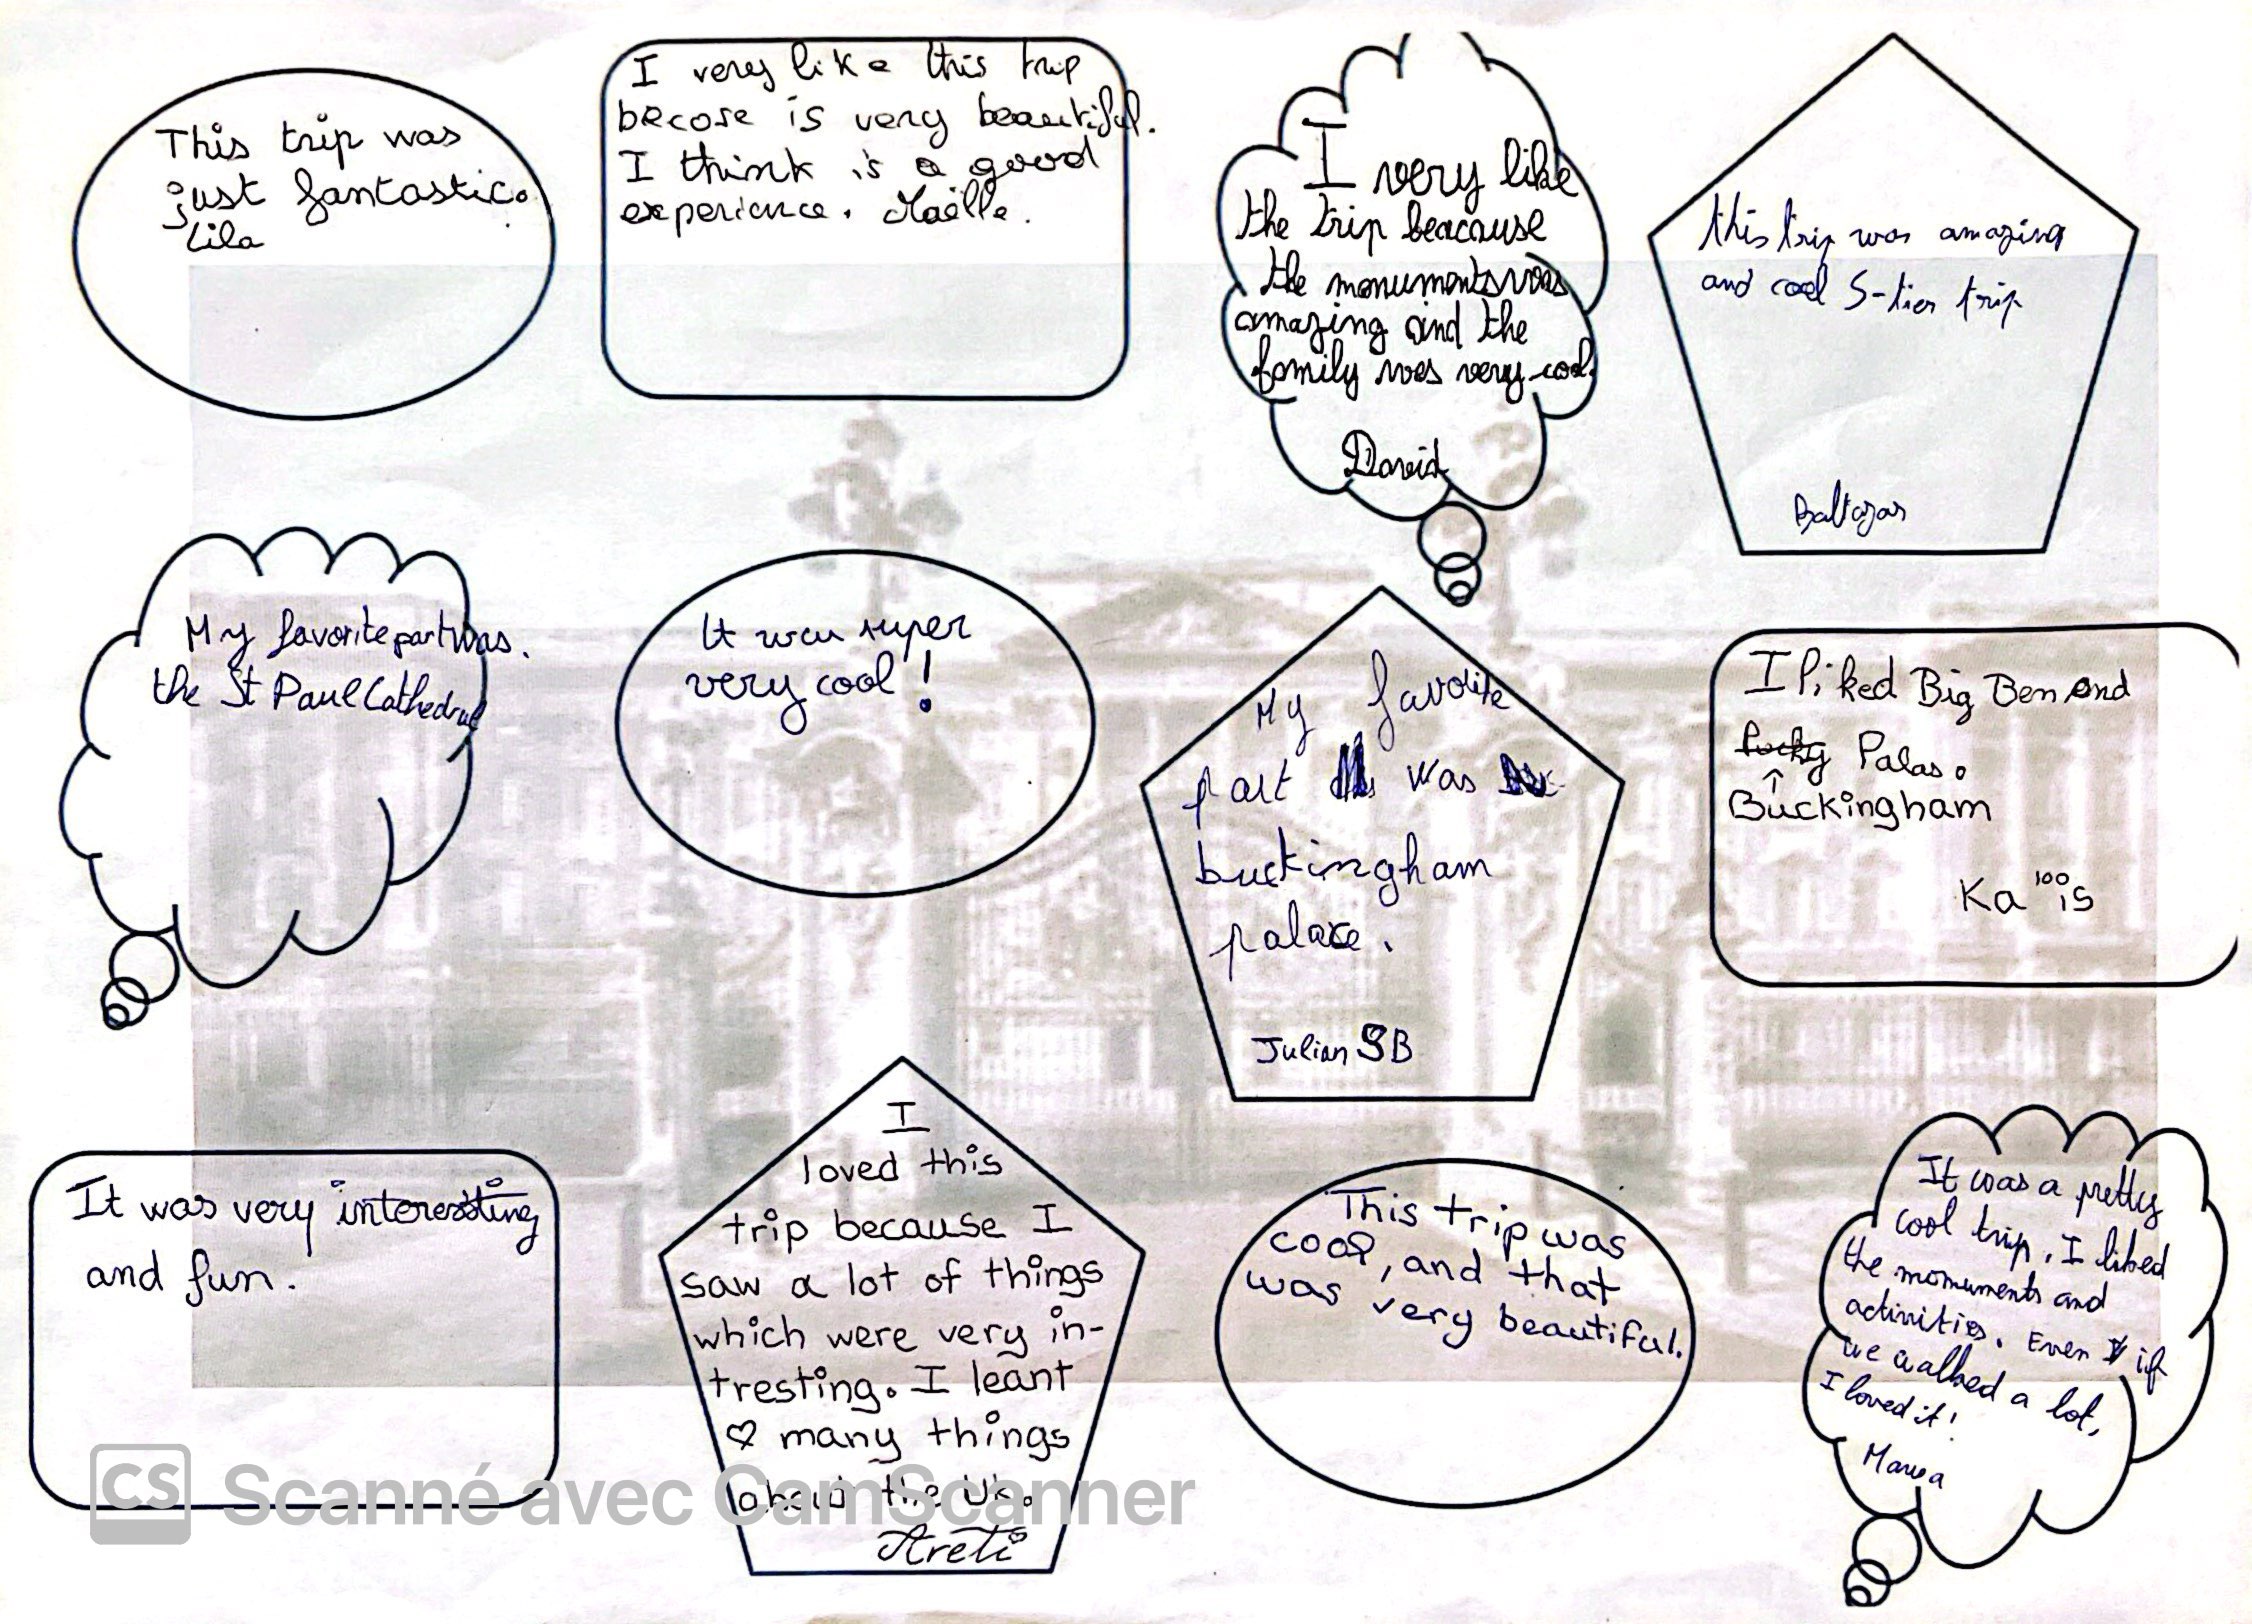 This trip was
just fantastic.
Lila
I very like this trip
becose is very beautiful.
I think is a good
experience. Maëlle.
I very like
the trip beacause
the monuments was
amazing and the
family was very cool.
David
this trip was amazing
and cool S-tier trip
Baltazar
My favorite part was.
the St Paul Cathedral
It was super
very cool !
My favorite
part was
buckingham
palace.
Julian SB
I liked Big Ben and
Palas.
Buckingham
Ka is
It was very interessting
and fun.
I
loved this
trip because I
saw a lot of things
which were very in-
tresting. I leant
♡ many things
about the UK.
Areti
This trip was
cool, and that
was very beautiful.
It was a pretty
cool trip. I liked
the monuments and
activities. Even if
we walked a lot,
I loved it!
Marwa
CS Scanné avec CamScanner